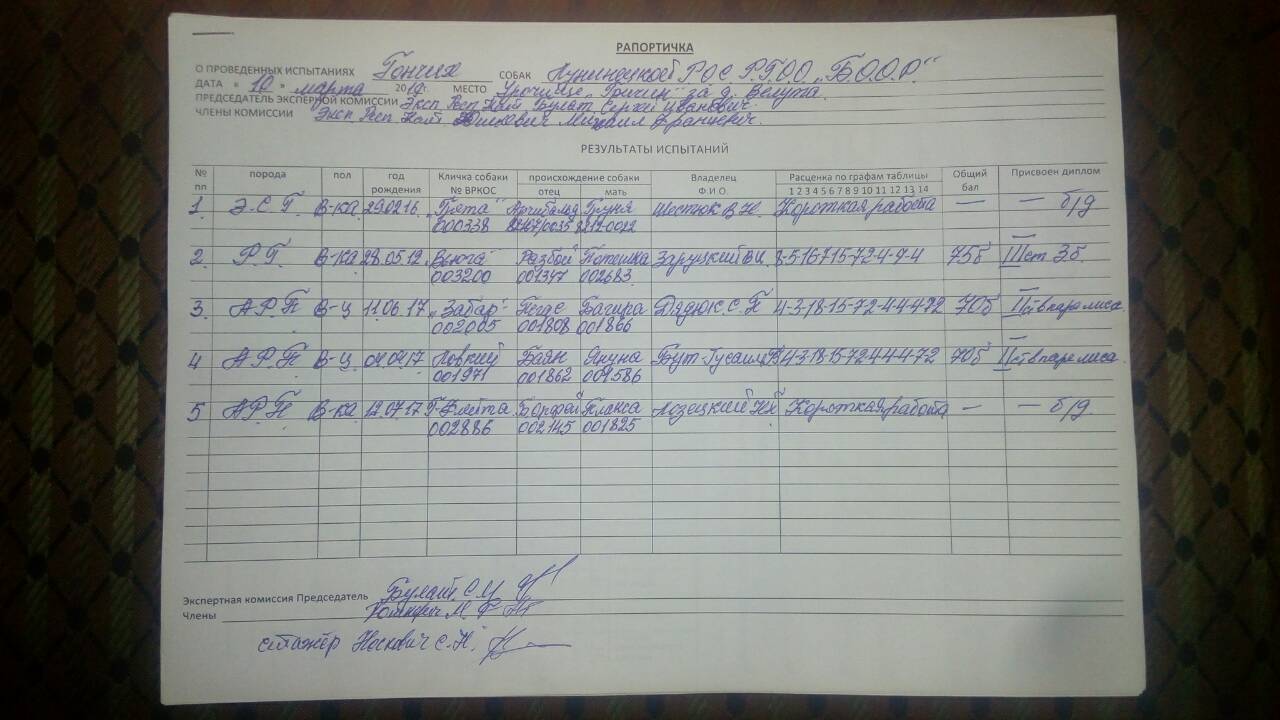 РАПОРТИЧКА
О ПРОВЕДЕННЫХ ИСПЫТАНИЯХ Гончих СОБАК Лунинецкой РОС РГОО „Б.О.О.Р"
ДАТА « 10 » марта 20 г. МЕСТО Урочище „Гончин" за д. Велута.
ПРЕДСЕДАТЕЛЬ ЭКСПЕРНОЙ КОМИССИИ Эксп Респ Кат Булат Сергей Иванович.
ЧЛЕНЫ КОМИССИИ Эксп Респ Кат Михаил Францевич.
РЕЗУЛЬТАТЫ ИСПЫТАНИЙ
№ пп порода пол год рождения Кличка собаки № ВРКОС происхождение собаки отец мать Владелец Ф.И.О. Расценка по графам таблицы 1 2 3 4 5 6 7 8 9 10 11 12 13 14 Общий бал Присвоен диплом
1. Э.С.Г. В-ка 29.02.16. „Грета" Груня Шестюк В.Н. Короткая работа — — б/д
000338
2. Р.Г. В-ка 28.05.12. „Вьюга" Разбой Потешка Заруцкий В.И. 75б III ст З.б.
003200 001347 002683
3. А.Р.П В-ц 11.06.17 „Забар" Пегас Багира Дядюк С.П 4-3-18-15-7-2-4-4-4-7-2 70б II ст в паре лиса.
002005 001808 001866
4 А.Р.П. В-ц. 04.17 Ловкий Баян Януна 4-3-18-15-7-2-4-4-4-7-2 70б II ст в паре лиса.
001971 001862 001586
5 А.Р.П. В-ка 12.07.17 Г-Флейта Плакса Лозецкий Короткая работа — — б/д.
002886 002145 001825
Экспертная комиссия Председатель Булат С.И
Члены М.Ф.
стажёр Носкович С.Н.